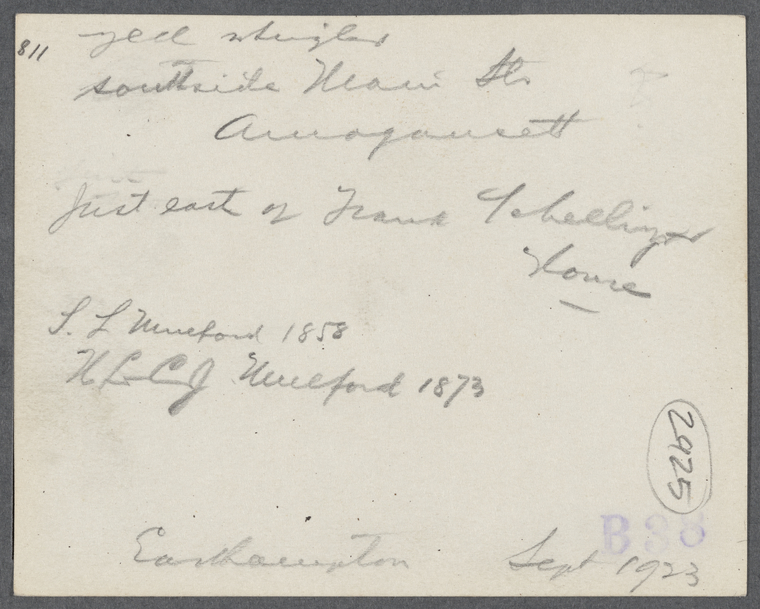 811
red shingles
southside Main St.
Amagansett
Just east of Frank Schellinger
House
S. L Mulford 1858
H L & C J Mulford 1873
2925
B38
Easthampton Sept 1923